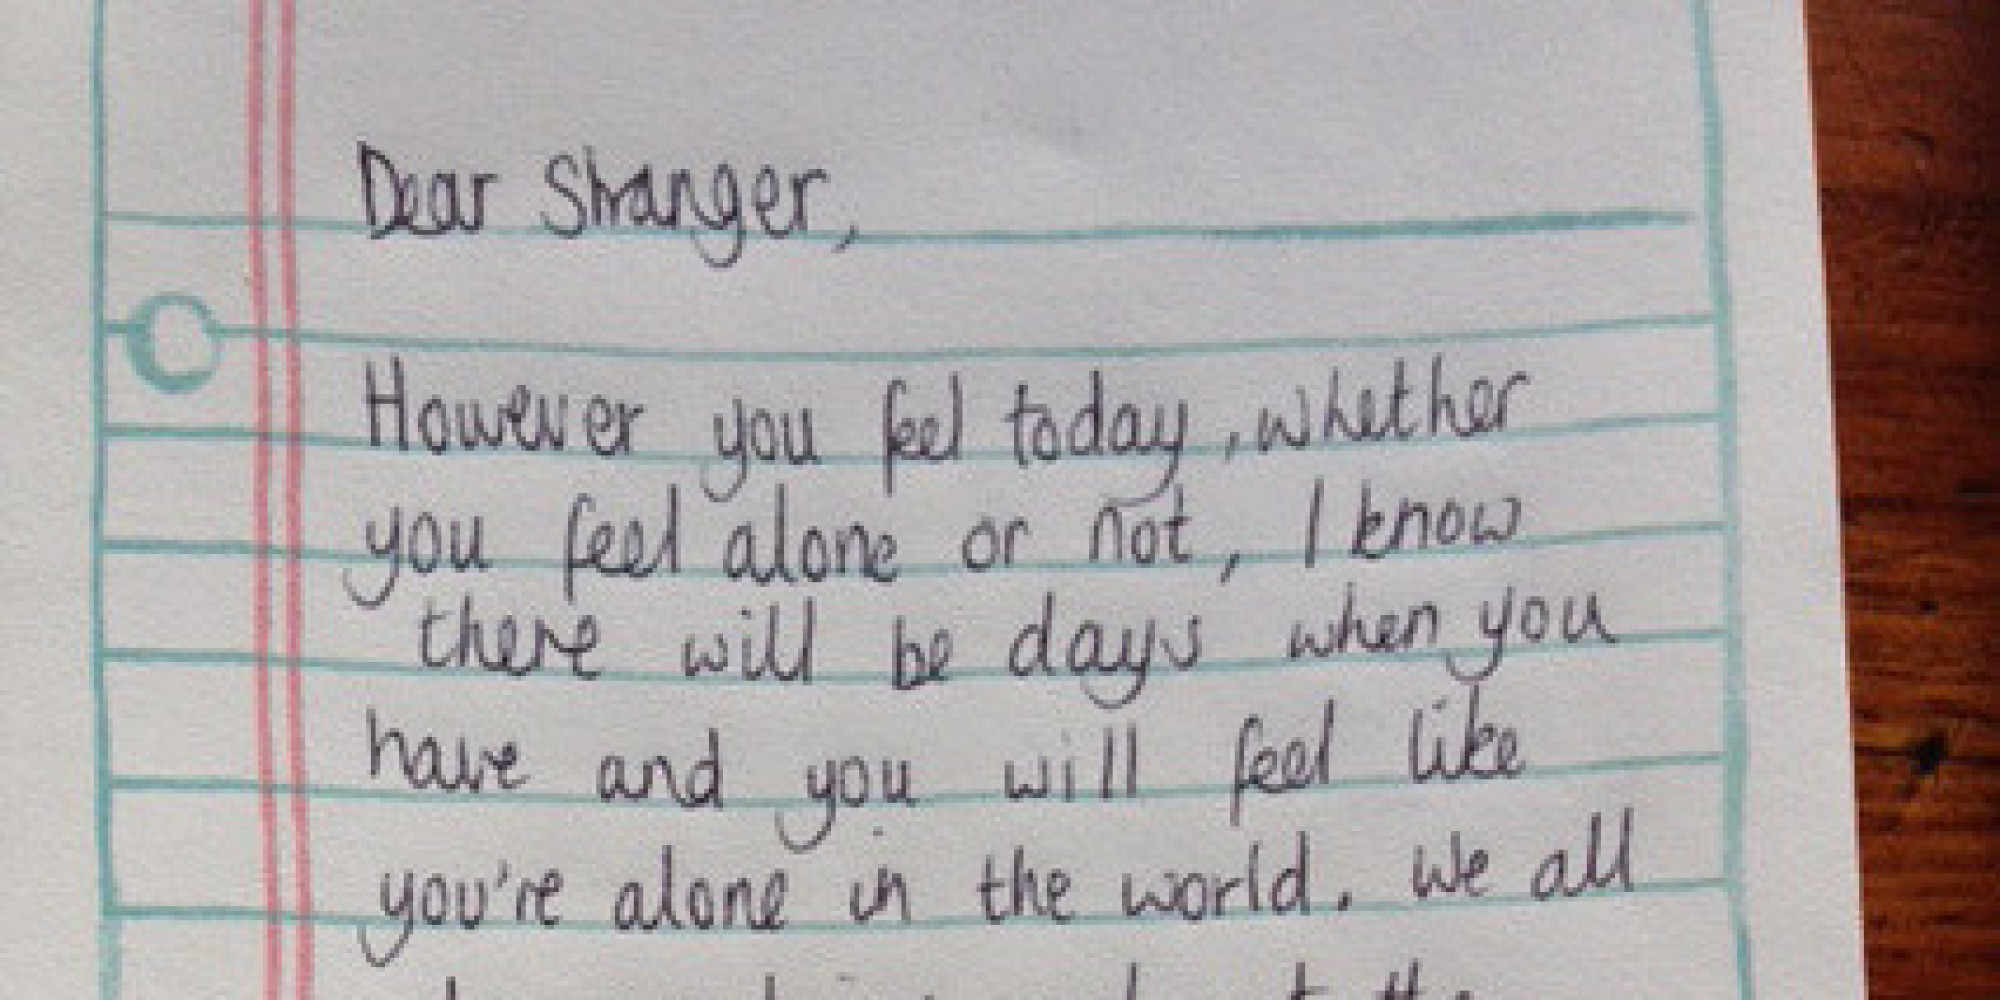 Dear Stranger,
However you feel today, whether
you feel alone or not, I know
there will be days when you
have and you will feel like
you're alone in the world. We all